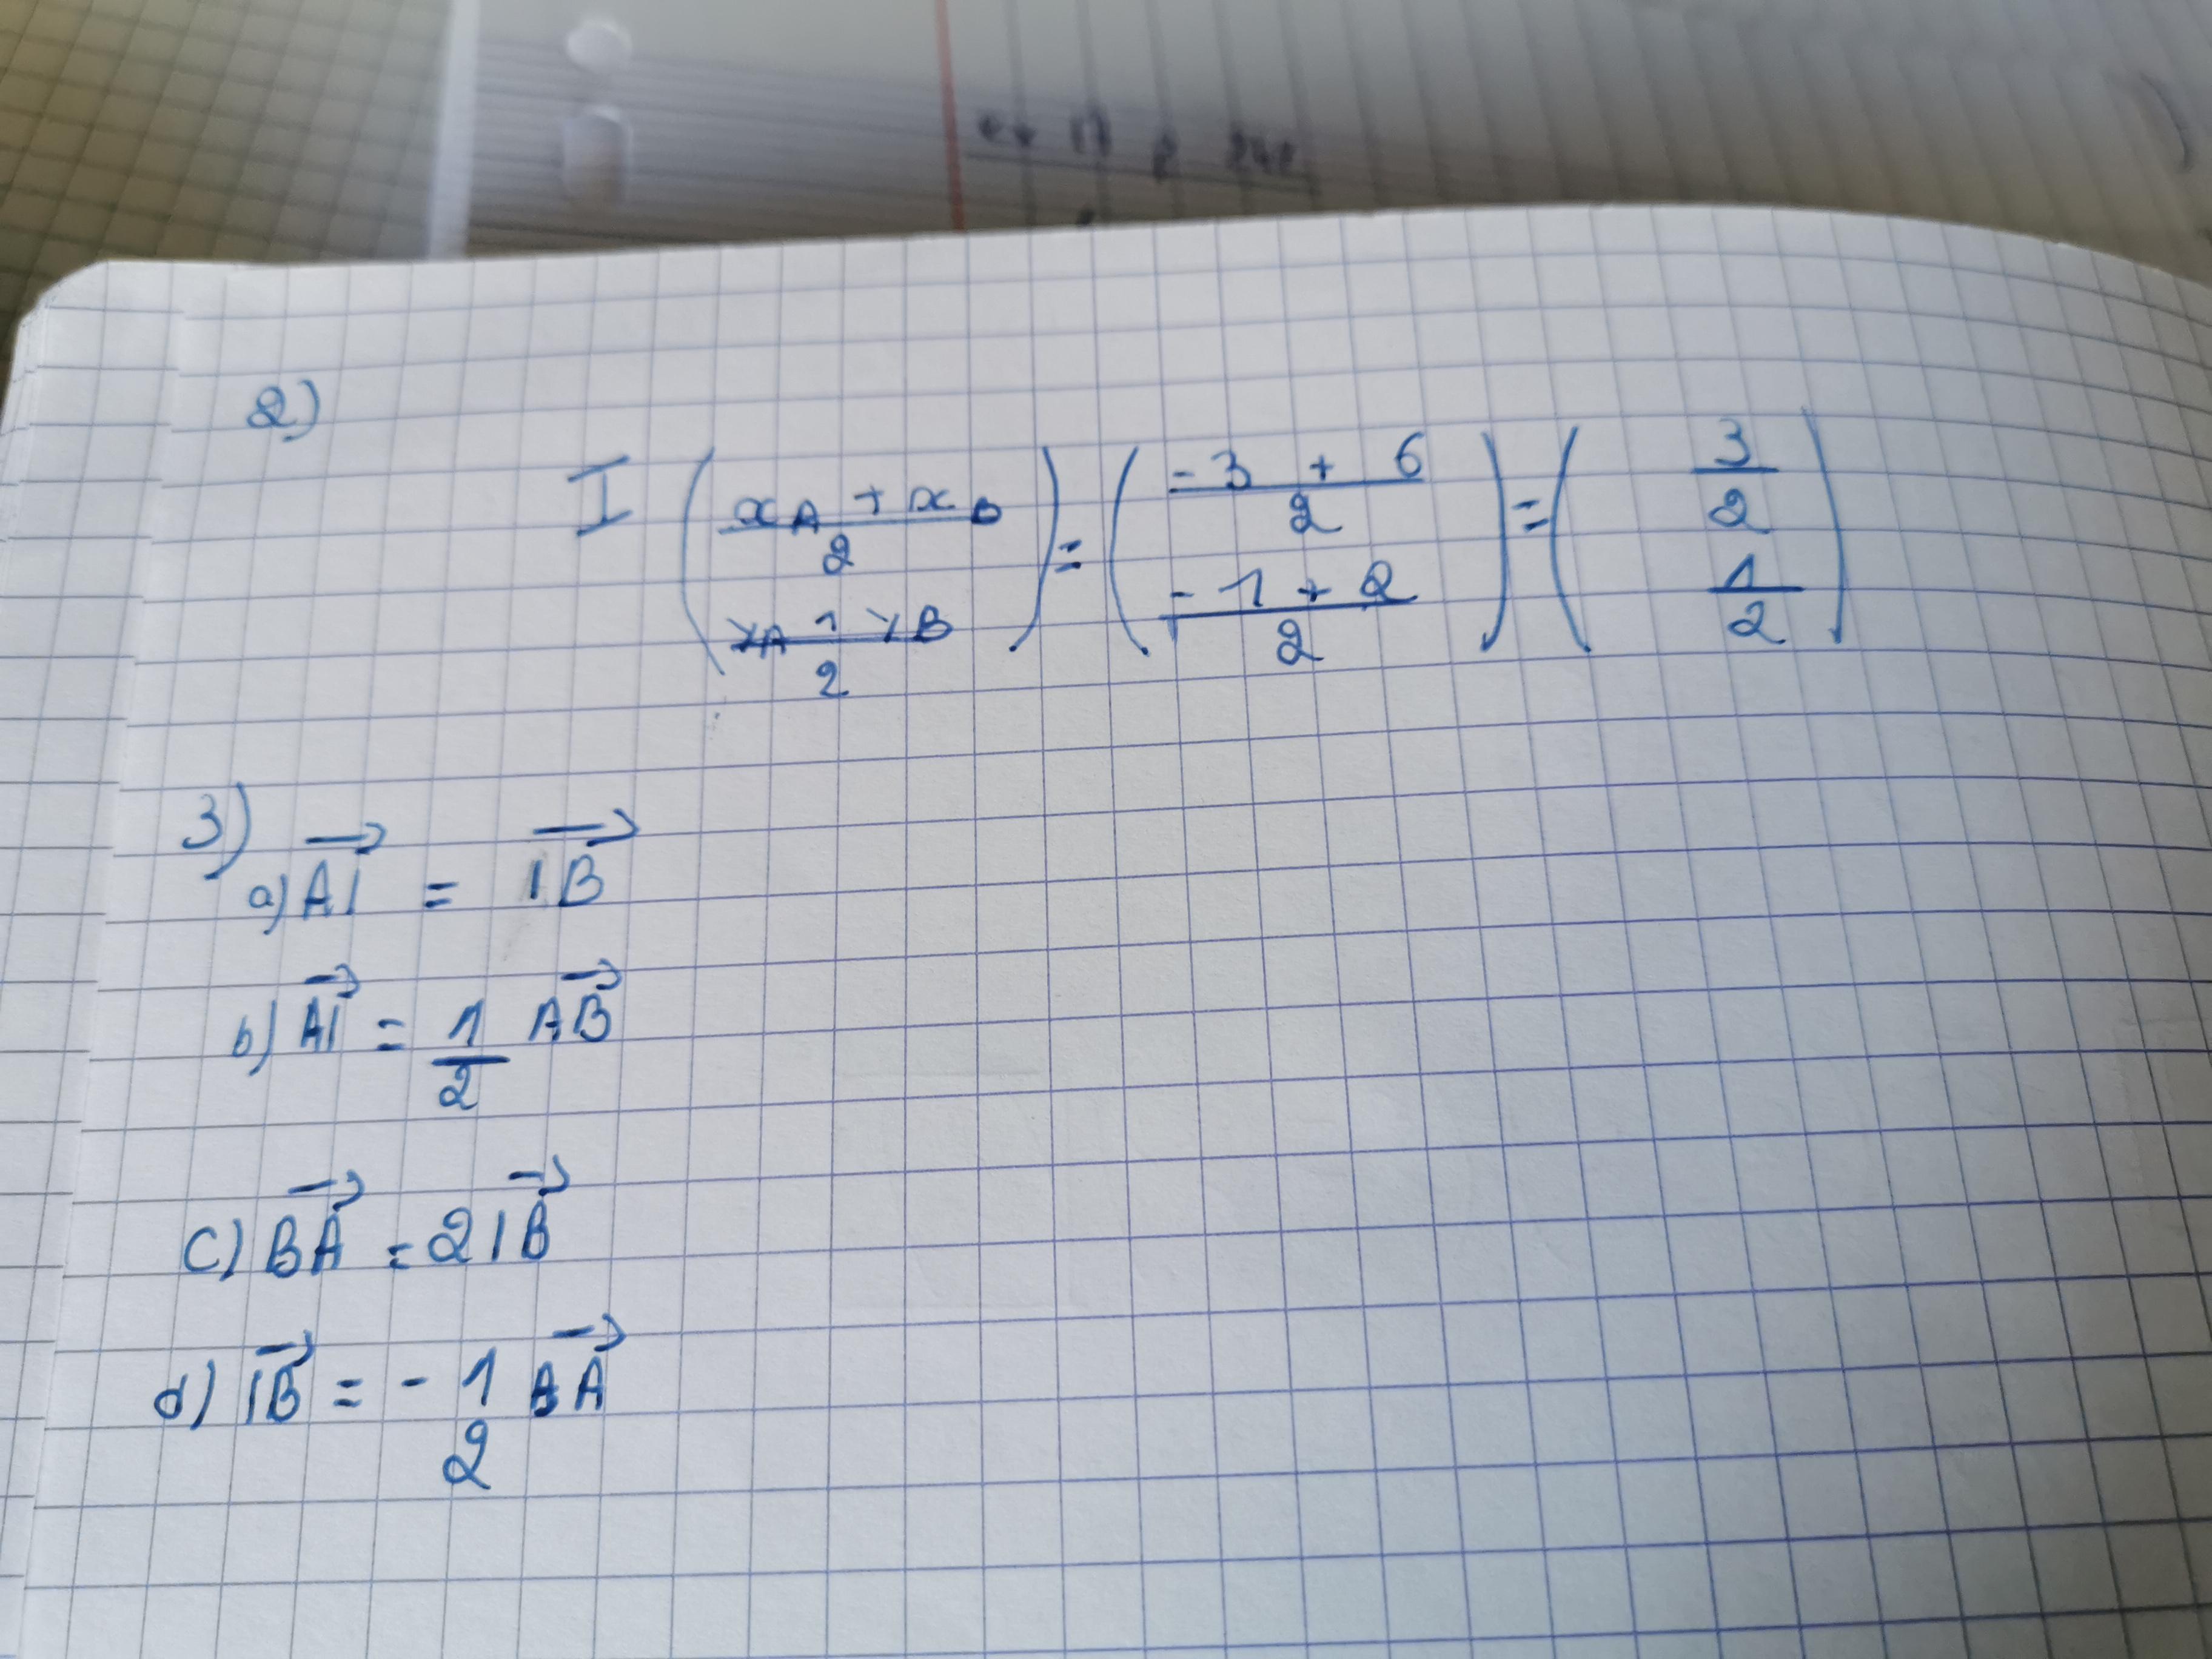 2)
I ( (x_A + x_B)/2 ; (y_A + y_B)/2 ) = ( (-3 + 6)/2 ; (-1 + 2)/2 ) = ( 3/2 ; 1/2 )
3)
a) \overrightarrow{AI} = \overrightarrow{IB}
b) \overrightarrow{AI} = 1/2 \overrightarrow{AB}
c) \overrightarrow{BA} = 2 \overrightarrow{IB}
d) \overrightarrow{IB} = - 1/2 \overrightarrow{BA}